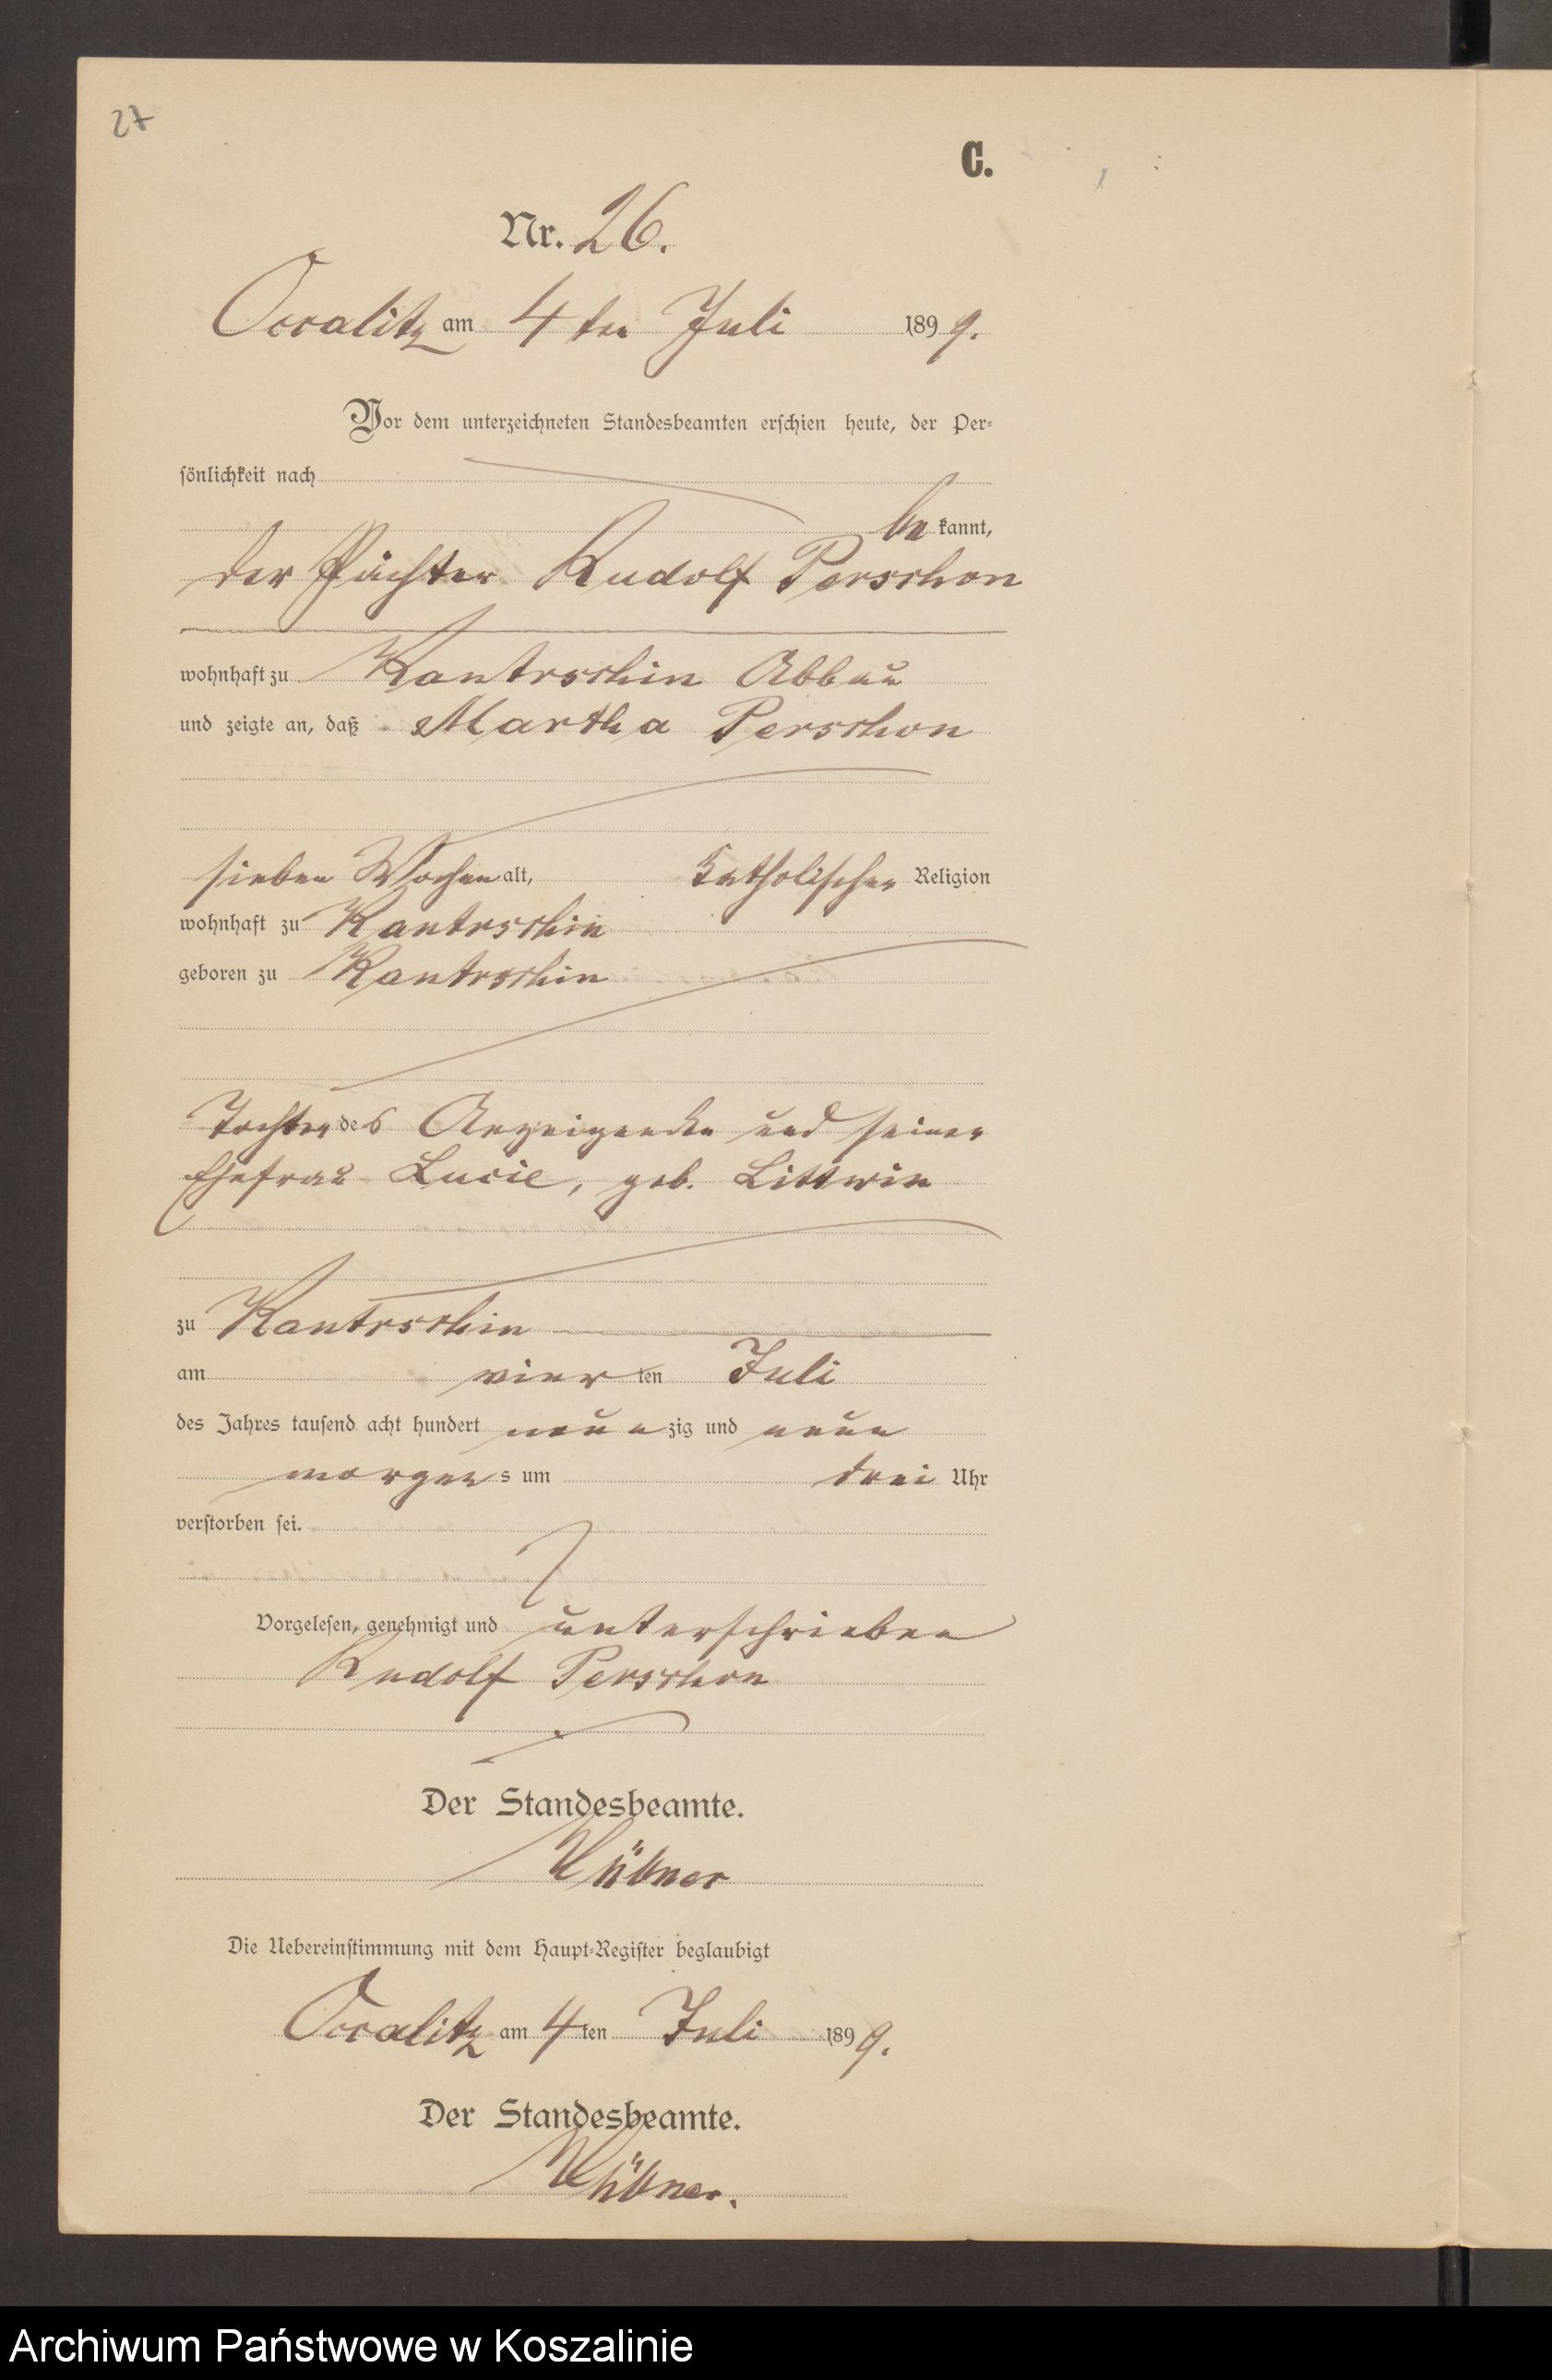 27
C.
Nr. 26.
Occalitz am 4ten Juli 1899.
Vor dem unterzeichneten Standesbeamten erschien heute, der Per-
sönlichkeit nach
bekannt,
der Pächter Rudolf Perschon
wohnhaft zu Kantrschin Abbau
und zeigte an, daß Martha Perschon
sieben Wochen alt, katholischer Religion
wohnhaft zu Kantrschin
geboren zu Kantrschin
Tochter des Anzeigenden und seiner
Ehefrau Lucie, geb. Littwin
zu Kantrschin
am vierten Juli
des Jahres tausend acht hundert neunzig und neun
morgens um drei Uhr
verstorben sei.
Vorgelesen, genehmigt und unterschrieben
Rudolf Perschon
Der Standesbeamte.
Hübner
Die Uebereinstimmung mit dem Haupt-Register beglaubigt
Occalitz am 4ten Juli 1899.
Der Standesbeamte.
Hübner.
Archiwum Państwowe w Koszalinie